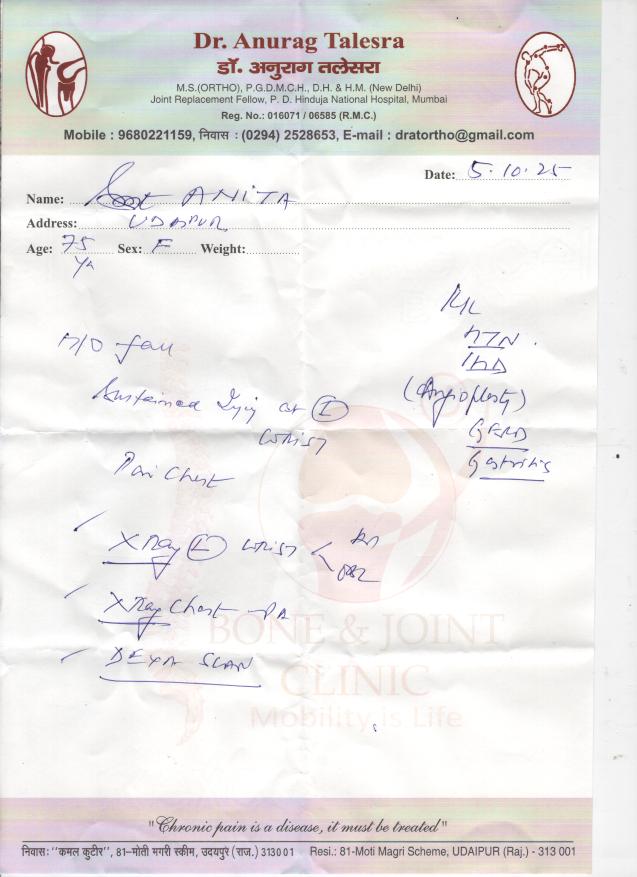 Dr. Anurag Talesra
डॉ. अनुराग तलेसरा
M.S.(ORTHO), P.G.D.M.C.H., D.H. & H.M. (New Delhi)
Joint Replacement Fellow, P. D. Hinduja National Hospital, Mumbai
Reg. No.: 016071 / 06585 (R.M.C.)
Mobile : 9680221159, निवास : (0294) 2528653, E-mail : dratortho@gmail.com
Date: 5.10.25
Name: ANITA
Address: UDAIPUR
Age: 75 Yr Sex: F Weight:
HTN
IHD
(Angioplasty)
GERD
Gastritis
H/O fall
Sustained Injury at L
wrist
Pain Chest
X Ray L wrist
X Ray Chest - PA
DEXA SCAN
BONE & JOINT
CLINIC
Mobility is Life
"Chronic pain is a disease, it must be treated"
निवास: "कमल कुटीर", 81-मोती मगरी स्कीम, उदयपुर (राज.) 313001 Resi.: 81-Moti Magri Scheme, UDAIPUR (Raj.) - 313 001